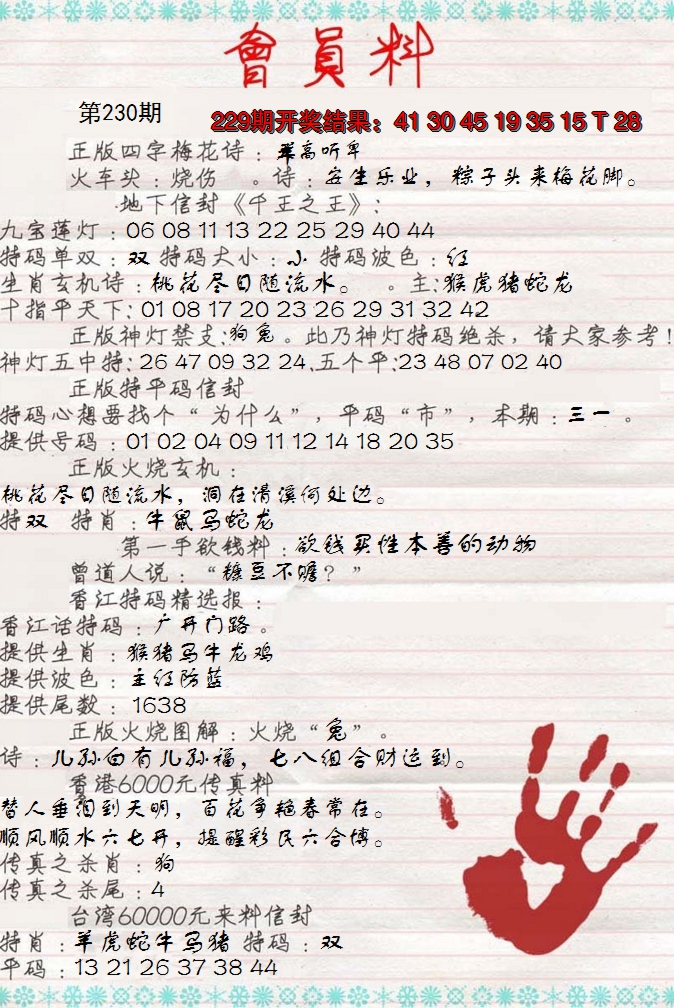 會員料
第230期
229期开奖结果：41 30 45 19 35 15 T 28
正版四字梅花诗：羣高听卑
火车头：烧伤 。诗：安生乐业，粽子头来梅花脚。
地下信封《千王之王》：
九宝莲灯：06 08 11 13 22 25 29 40 44
特码单双：双 特码大小：小 特码波色：红
生肖玄机诗：桃花尽日随流水。 。主：猴虎猪蛇龙
十指平天下：01 08 17 20 23 26 29 31 32 42
正版神灯禁支：狗兔。此乃神灯特码绝杀，请大家参考！
神灯五中特：26 47 09 32 24.五个平：23 48 07 02 40
正版特平码信封
特码心想要找个“为什么”，平码“市”，本期：三一。
提供号码：01 02 04 09 11 12 14 18 20 35
正版火烧玄机：
桃花尽日随流水，洞在清溪何处边。
特双 特肖：牛鼠马蛇龙
第一手欲钱料：欲钱买性本善的动物
曾道人说：“糠豆不赡？”
香江特码精选报：
香江话特码：广开门路。
提供生肖：猴猪马牛龙鸡
提供波色：主红防蓝
提供尾数：1638
正版火烧图解：火烧“兔”。
诗：儿孙自有儿孙福，七八组合财运到。
香港6000元传真料
替人垂泪到天明，百花争艳春常在。
顺风顺水六七开，提醒彩民六合博。
传真之杀肖：狗
传真之杀尾：4
台湾60000元来料信封
特肖：羊虎蛇牛马猪 特码：双
平码：13 21 26 37 38 44